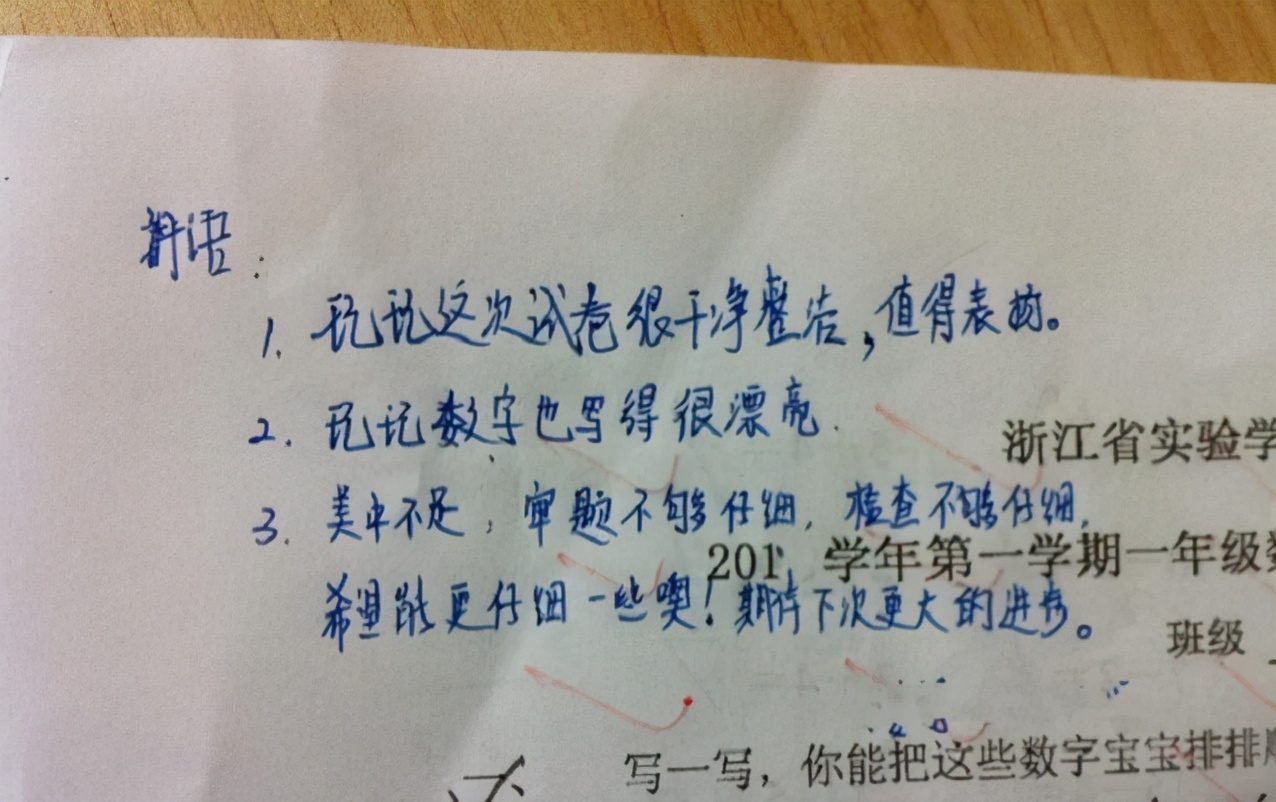 评语:
1. 玩玩这次试卷很干净整洁,值得表扬。
2. 玩玩数字也写得很漂亮.
浙江省实验学
3. 美中不足:审题不够仔细,检查不够仔细,
201 学年第一学期一年级数
希望能更仔细一些噢!期待下次更大的进步。
班级
一、写一写,你能把这些数字宝宝排排